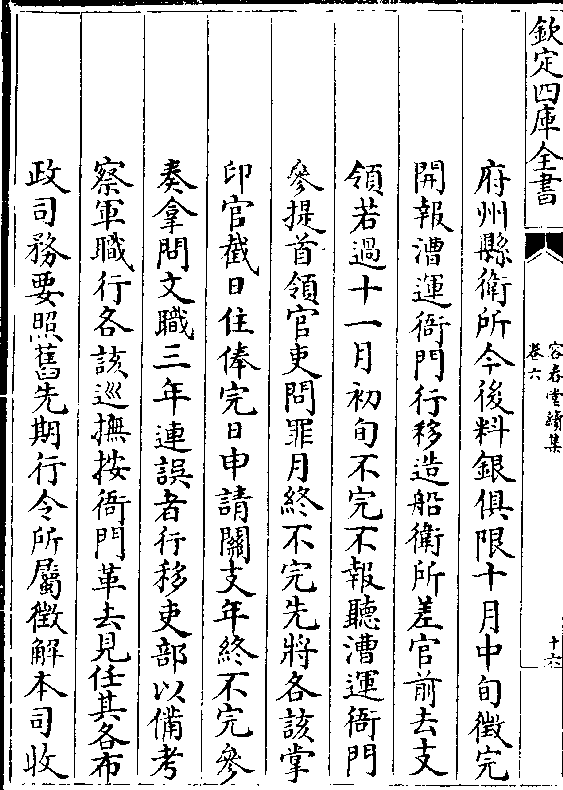 欽定四庫全書
容春堂續集
卷六
十六
府州縣衛所今後料銀俱限十月中旬徵完
開報漕運衙門行移造船衛所差官前去支
領若過十一月初旬不完不報聽漕運衙門
參提首領官吏問罪月終不完先將各該掌
印官截日住俸完日申請關支年終不完參
奏拿問文職三年連誤者行移吏部以備考
察軍職行各該巡撫按衙門革去見任其各布
政司務要照舊先期行令所屬徵解本司收